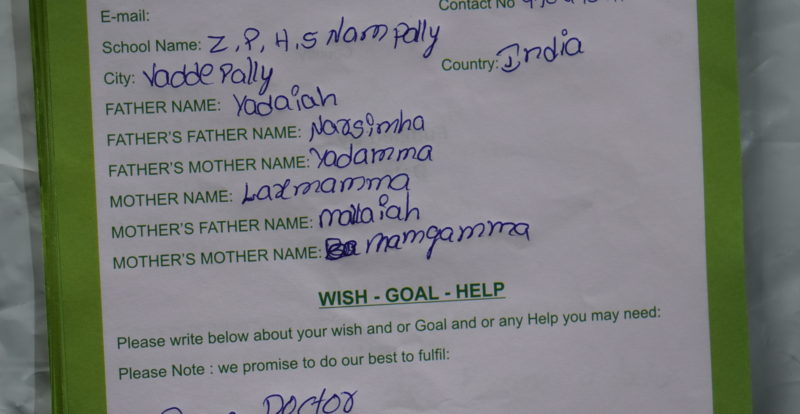 E-mail:
Contact No
School Name: Z.P.H.S Narmpally
City: Vaddepally Country: India
FATHER NAME: Yadaiah
FATHER'S FATHER NAME: Narsimha
FATHER'S MOTHER NAME: Yadamma
MOTHER NAME: Laxmamma
MOTHER'S FATHER NAME: mallaiah
MOTHER'S MOTHER NAME: mamgamma
WISH - GOAL - HELP
Please write below about your wish and or Goal and or any Help you may need:
Please Note : we promise to do our best to fulfil:
Doctor